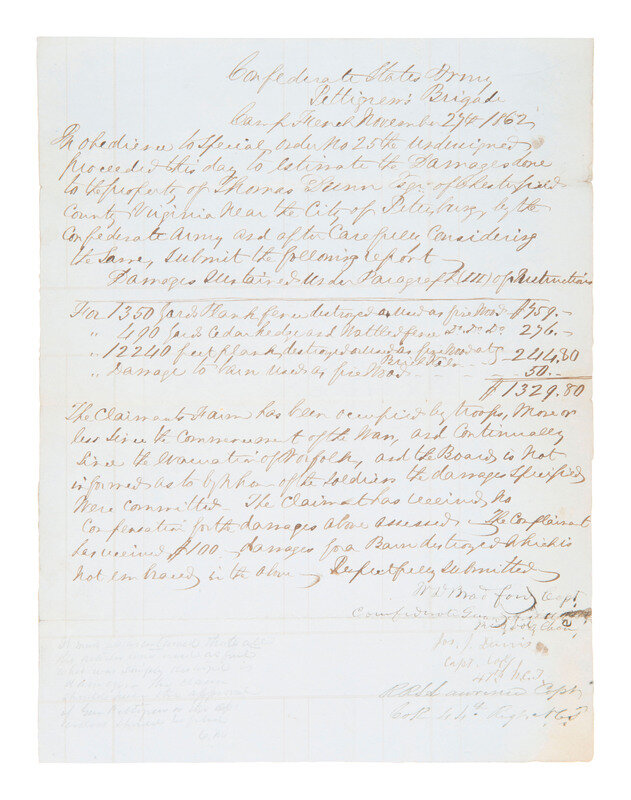 Confederate States Army
Pettigrew's Brigade
Camp French November 27th 1862
In obedience to Special order No 25 the undersigned
proceeded this day to estimate the Damages done
to the property of Thomas Esqr of Chesterfield
County Virginia Near the City of Petersburg, by the
Confederate Army and after Carefully Considering
the Same, submit the following report
Damages Sustained under Paragraph (III) of Instructions
For 1350 Yards Plank fence destroyed & used as fire Wood $759.-
" 490 Yards Cedar hedge and Wattled fence do. do. do. 276.-
" 12240 feet plank destroyed & used as fire Wood at 244.80
" Damage to barn used as fire Wood 50.-
$1329.80
The Claimants Farm has been occupied by troops, More or
less Since the Commencement of the War, and Continually
Since the Evacuation of Norfolk, and the Board is Not
informed as to by whom of the Soldiers the damages Specified
Were Committed - The Claimant has received No
Compensation for the damages above assessed - The Complainant
has received $100 - damages for a Barn destroyed which is
Not embraced in the above - Respectfully Submitted
Capt
Confederate
Jos. J. Davis
Capt. Co G
47th N.C.T.
Lawrence Capt
Co 44th Regt NCT